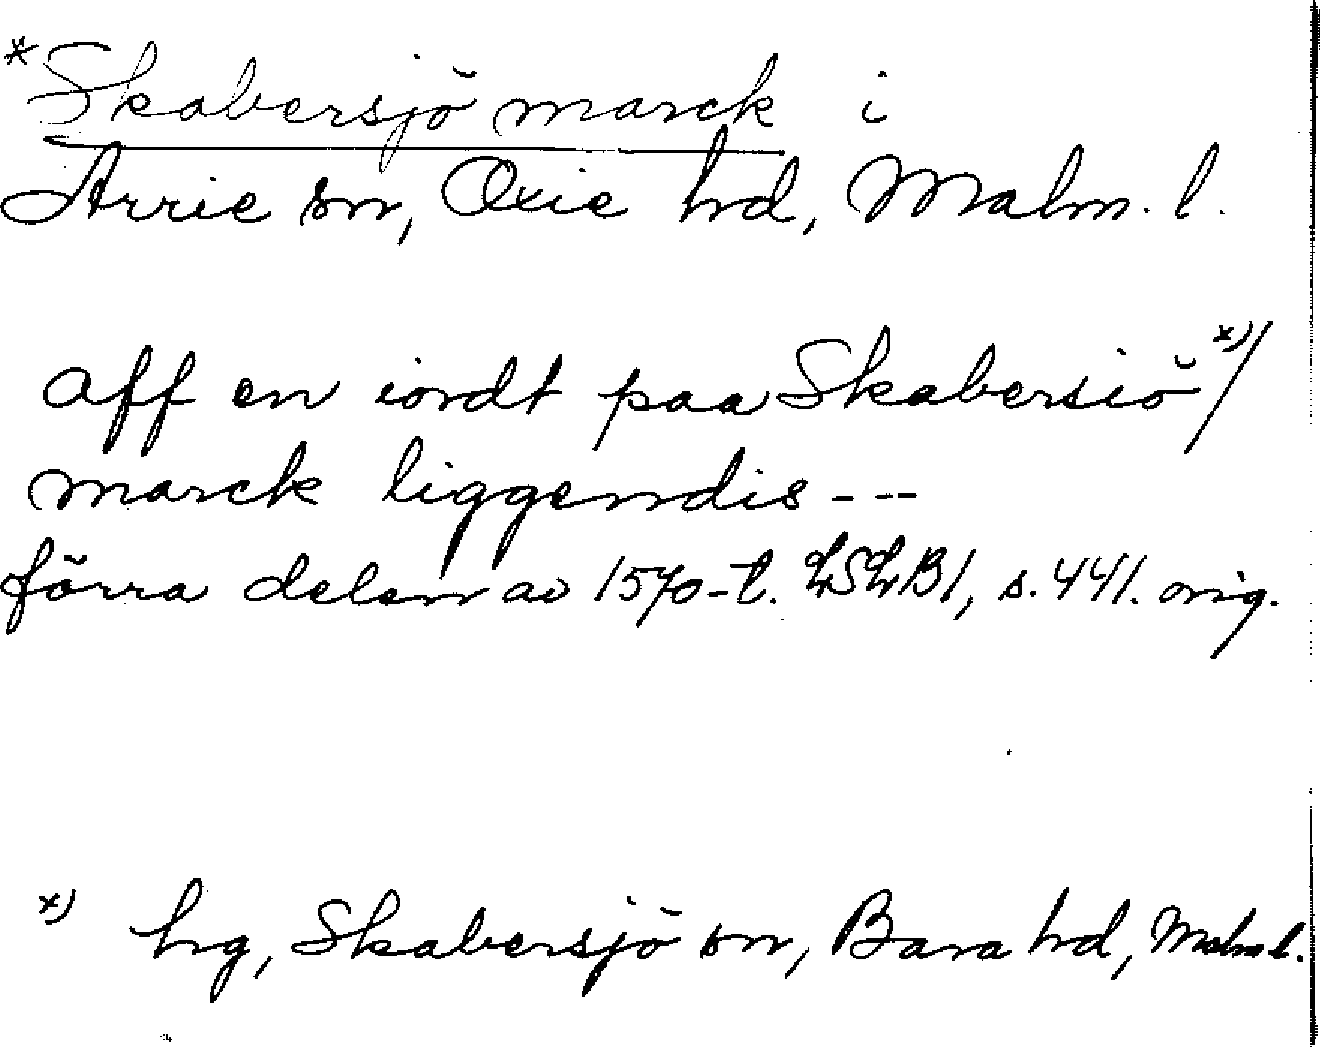 *Skabersjö marck i
Arrie sn, Oxie hd, Malm. l.
aff en iordt paa Skabersiö x)/
marck liggendis ---
förra delen av 1570-t. LSLB1, s. 441. orig.
x) hg, Skabersjö sn, Bara hd, Malm l.